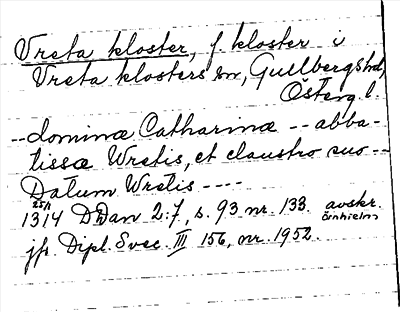 Vreta kloster, f. kloster i
Vreta klosters sn, Gullbergs hd,
Österg. l.
-- dominæ Catharinæ -- abba-
tissæ Wretis, et claustro suo --
Datum Wretis ----
25/1
1314 DDan 2.7, s. 93 nr. 133. avskr.
örnhielm
jfr Dipl. Svec. III 156, nr. 1952.